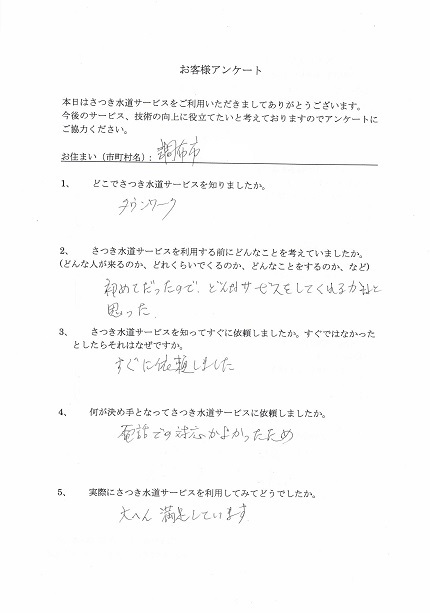 お客様アンケート
本日はさつき水道サービスをご利用いただきましてありがとうございます。
今後のサービス、技術の向上に役立てたいと考えておりますのでアンケートに
ご協力ください。
お住まい（市町村名）： 調布市
1、 どこでさつき水道サービスを知りましたか。
タウンワーク
2、 さつき水道サービスを利用する前にどんなことを考えていましたか。
（どんな人が来るのか、どれくらいでくるのか、どんなことをするのか、など）
初めてだったので、どんなサービスをしてくれるかなと
思った。
3、 さつき水道サービスを知ってすぐに依頼しましたか。すぐではなかった
としたらそれはなぜですか。
すぐに依頼しました
4、 何が決め手となってさつき水道サービスに依頼しましたか。
電話での対応がよかったため
5、 実際にさつき水道サービスを利用してみてどうでしたか。
大へん満足しています